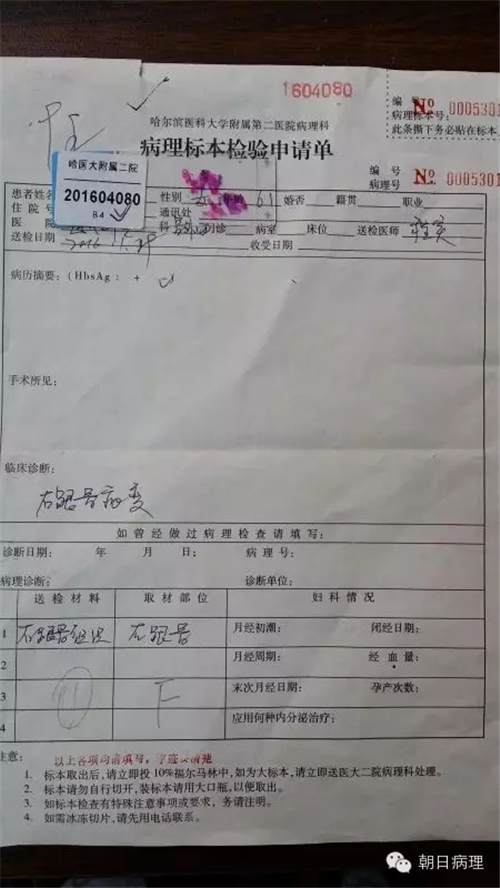 1604080
编号 No 0005301
病理标本号:
此条撕下务必贴在标本
哈尔滨医科大学附属第二医院病理科
病理标本检验申请单
编号
病理号 No 0005301
哈医大附属二院
201604080
B4
患者姓名 性别 61 婚否 籍贯 职业
住院号 通讯处
医院 科 门诊 病室 床位 送检医师
送检日期 2016 收受日期
病历摘要:(HbsAg: +
手术所见:
临床诊断:
右跟骨病变
如曾经做过病理检查请填写:
诊断日期: 年 月 日; 病理号:
病理诊断: 诊断单位:
送检材料 取材部位 妇科情况
1 右跟骨组织 右跟骨 月经初潮: 闭经日期:
2 月经周期: 经血量:
3 ① F 末次月经日期: 孕产次数:
4 应用何种内分泌治疗:
注意: 以上各项均请填写,字迹要清楚
1. 标本取出后,请立即投10%福尔马林中,如为大标本,请立即送医大二院病理科处理。
2. 标本请勿自行切开,装标本请用大口瓶,以便取出。
3. 如标本检查有特殊注意事项或要求,务请注明。
4. 如需冰冻切片,请先用电话联系。
朝日病理